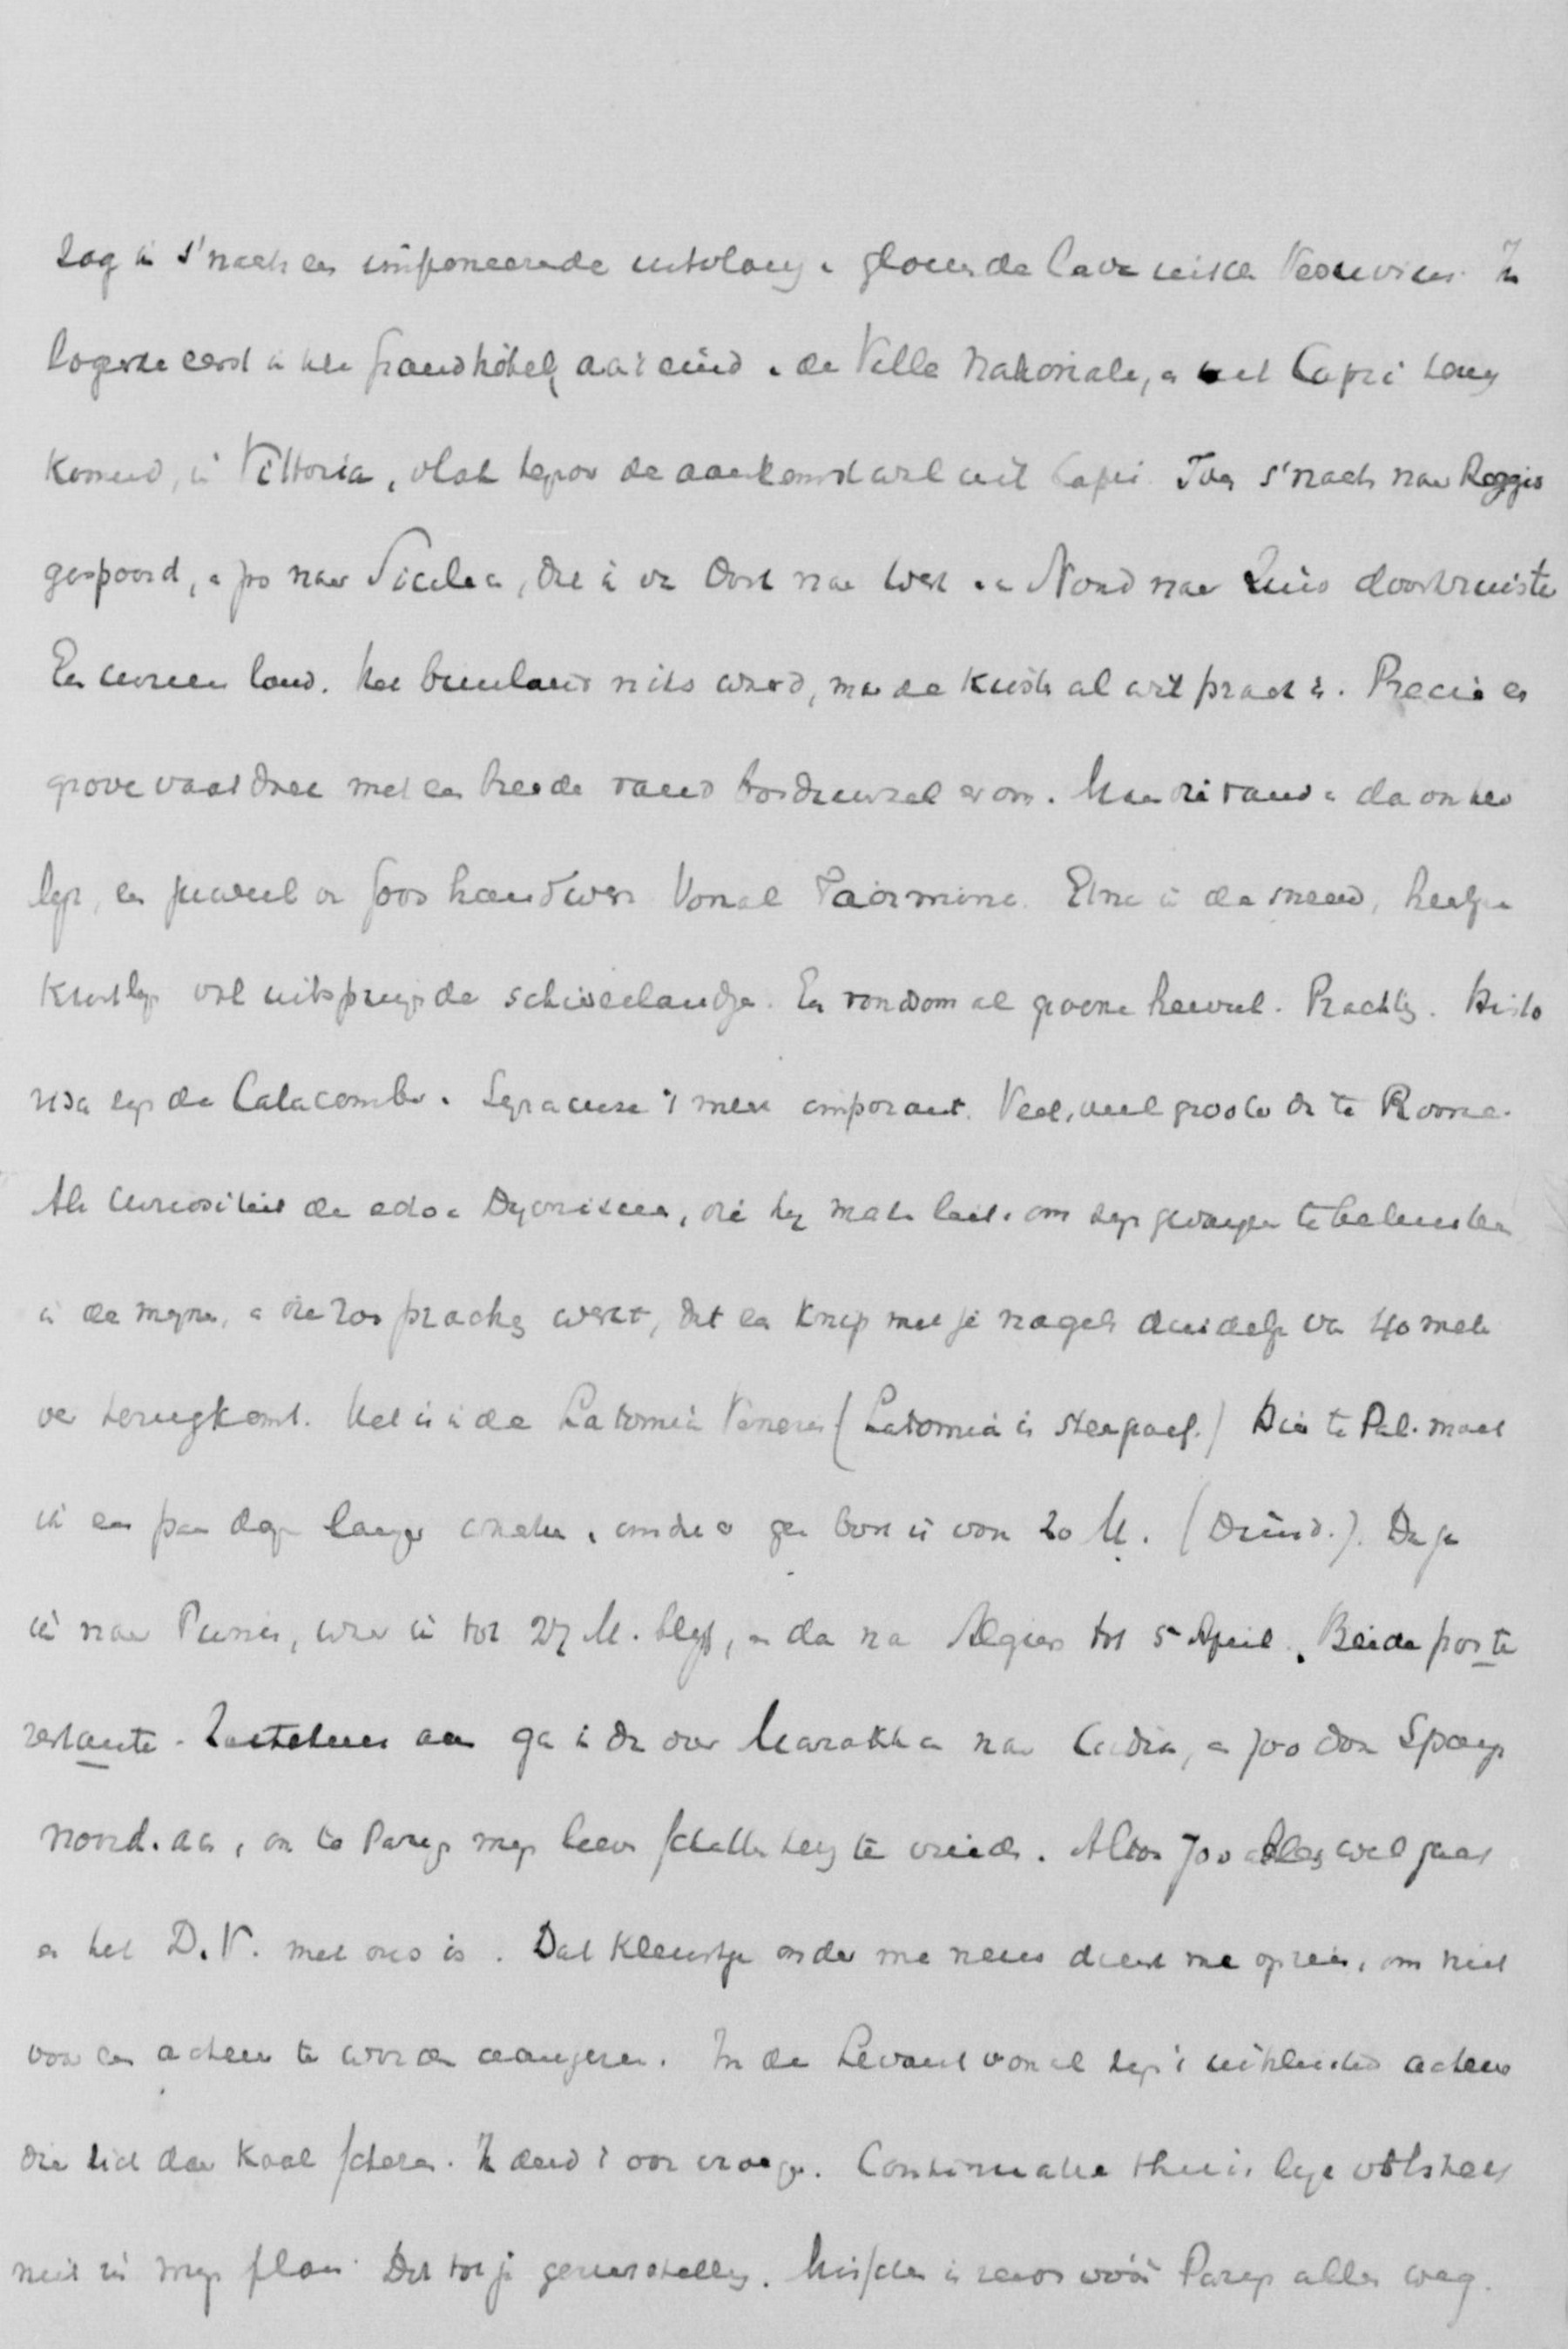 zag ik s'nachts een imponeerende uitvloeiing v. gloeiende lava uit den Vesuvius. Ik
logeerde eerst in het Grandhôtel, aan 't eind v. de Villa Nationale, en uit Capri terug
komend, in Vittoria, vlak tegenover de aankomst uit Capri. Toen s'nachts naar Reggio
gespoord, en zoo naar Sicilie, dat ik van Oost naar West en van Noord naar Zuid doorkruiste
Een curieus land. Het binnenland niets waard, maar de kusten al wat pracht is. Precies een
grove vaatdoek met een breede rand borduursel erom. Maar die rand is dan ook
een juweel van handwerk. Vooral Taormina. Etna in de sneeuw, heerlijke
kustlijn vol uitspringende schiereilandjes. En rondom al groene heuvels. Prachtig. Histo
risch zijn de Catacomben v. Syracuse 't meest imposant. Veel, veel grooter dan te Rome.
Als curiositeit de oor v. Dyonisius, die hij maken liet, om zijn gevangenen te beluisteren
in de mijnen, en die zoo prachtig werkt, dat een knip met je nagels duidelijk van 40 meter
ver terugkomt. Het is in de Latomia Veneris (Latomia is steengroef.) Hier te Pal. moet
ik een paar dagen langer wachten, omdat er geen boot is voor 20 M. (Dinsd.). Dan ga
ik naar Tunis, waar ik tot 27 M. blijf, en dan naar Algiers tot 5 April. Beide poste
restante. ga ik dan over Marokko naar Cadix, en zoo door Spanje
noord. aan, om te Parijs mijn lieve schatten terug te vinden. Altoos zoo alles wel gaat
en het D.V. met ons is. Dat kleurtje onder me neus dient me op reis, om niet
voor een acteur te worden aangezien. In de Levant vooral zijn 't uitsluitend acteurs
die zich daar kaal scheren. Ik deed 't ook vroeger. Continuatie thuis ligt volstrekt
niet in mijn plan. Dit tot je geruststelling. Misschien is reeds vóór Parijs alles weg.